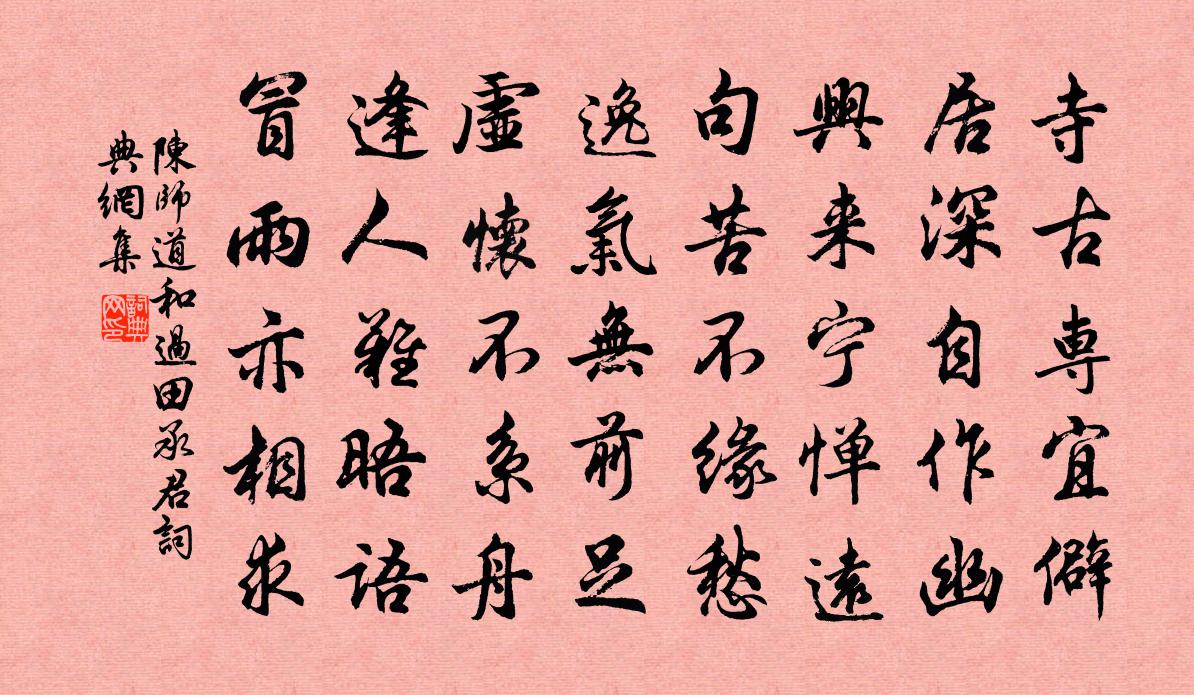 寺古専宜僻
居深自作幽
興来宁惮遠
句苦不緣愁
逸氣無前足
虛懷不系舟
逢人難晤語
冒雨亦相求
陳師道和過田承君詞
典網集
詞典
网印